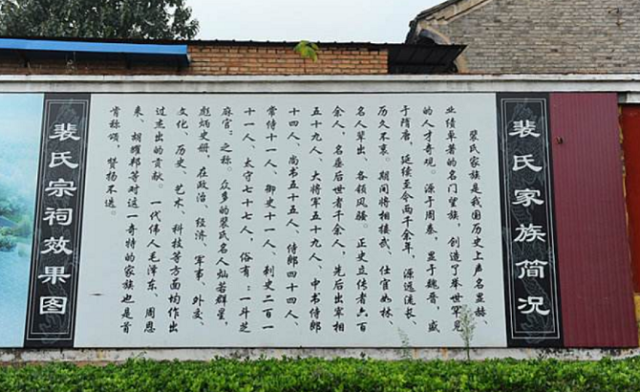 裴氏家族简况
裴氏家族是我国历史上声名显赫、
业绩卓著的名门望族，创造了举世罕见
的人才奇观。源于周秦，显于魏晋，盛
于隋唐，延续至今两千余年，源远流长，
历久不衰。期间将相接武、仕宦如林、
名人辈出、各领风骚。正史立传者六百
余人，名垂后世者千余人，先后出宰相
五十九人、大将军五十九人、中书侍郎
十四人、尚书五十五人、侍郎四十四人、
常侍十一人、御史十一人、刺史二百一
十一人、太守七十七人，俗有：一斗芝
麻官：之称。众多的裴氏名人灿若群星，
彪炳史册，在政治、经济、军事、外交、
文化、历史、艺术、科技等方面均作出
过杰出的贡献。一代伟人毛泽东、周恩
来、胡耀邦等对这一奇特的家族也是首
肯称颂，赞扬不迭。
裴氏宗祠效果图